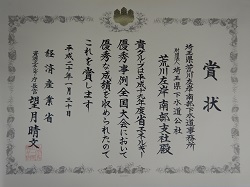 賞状
埼玉県荒川左岸南部下水道事務所
財団法人 埼玉県下水道公社
荒川左岸南部支社殿
貴グループは平成十九年度省エネルギー
優秀事例全国大会において
優秀な成績を収められたので
これを賞します
平成二十年一月三十日
経済産業省
資源エネルギー庁長官 望月晴文